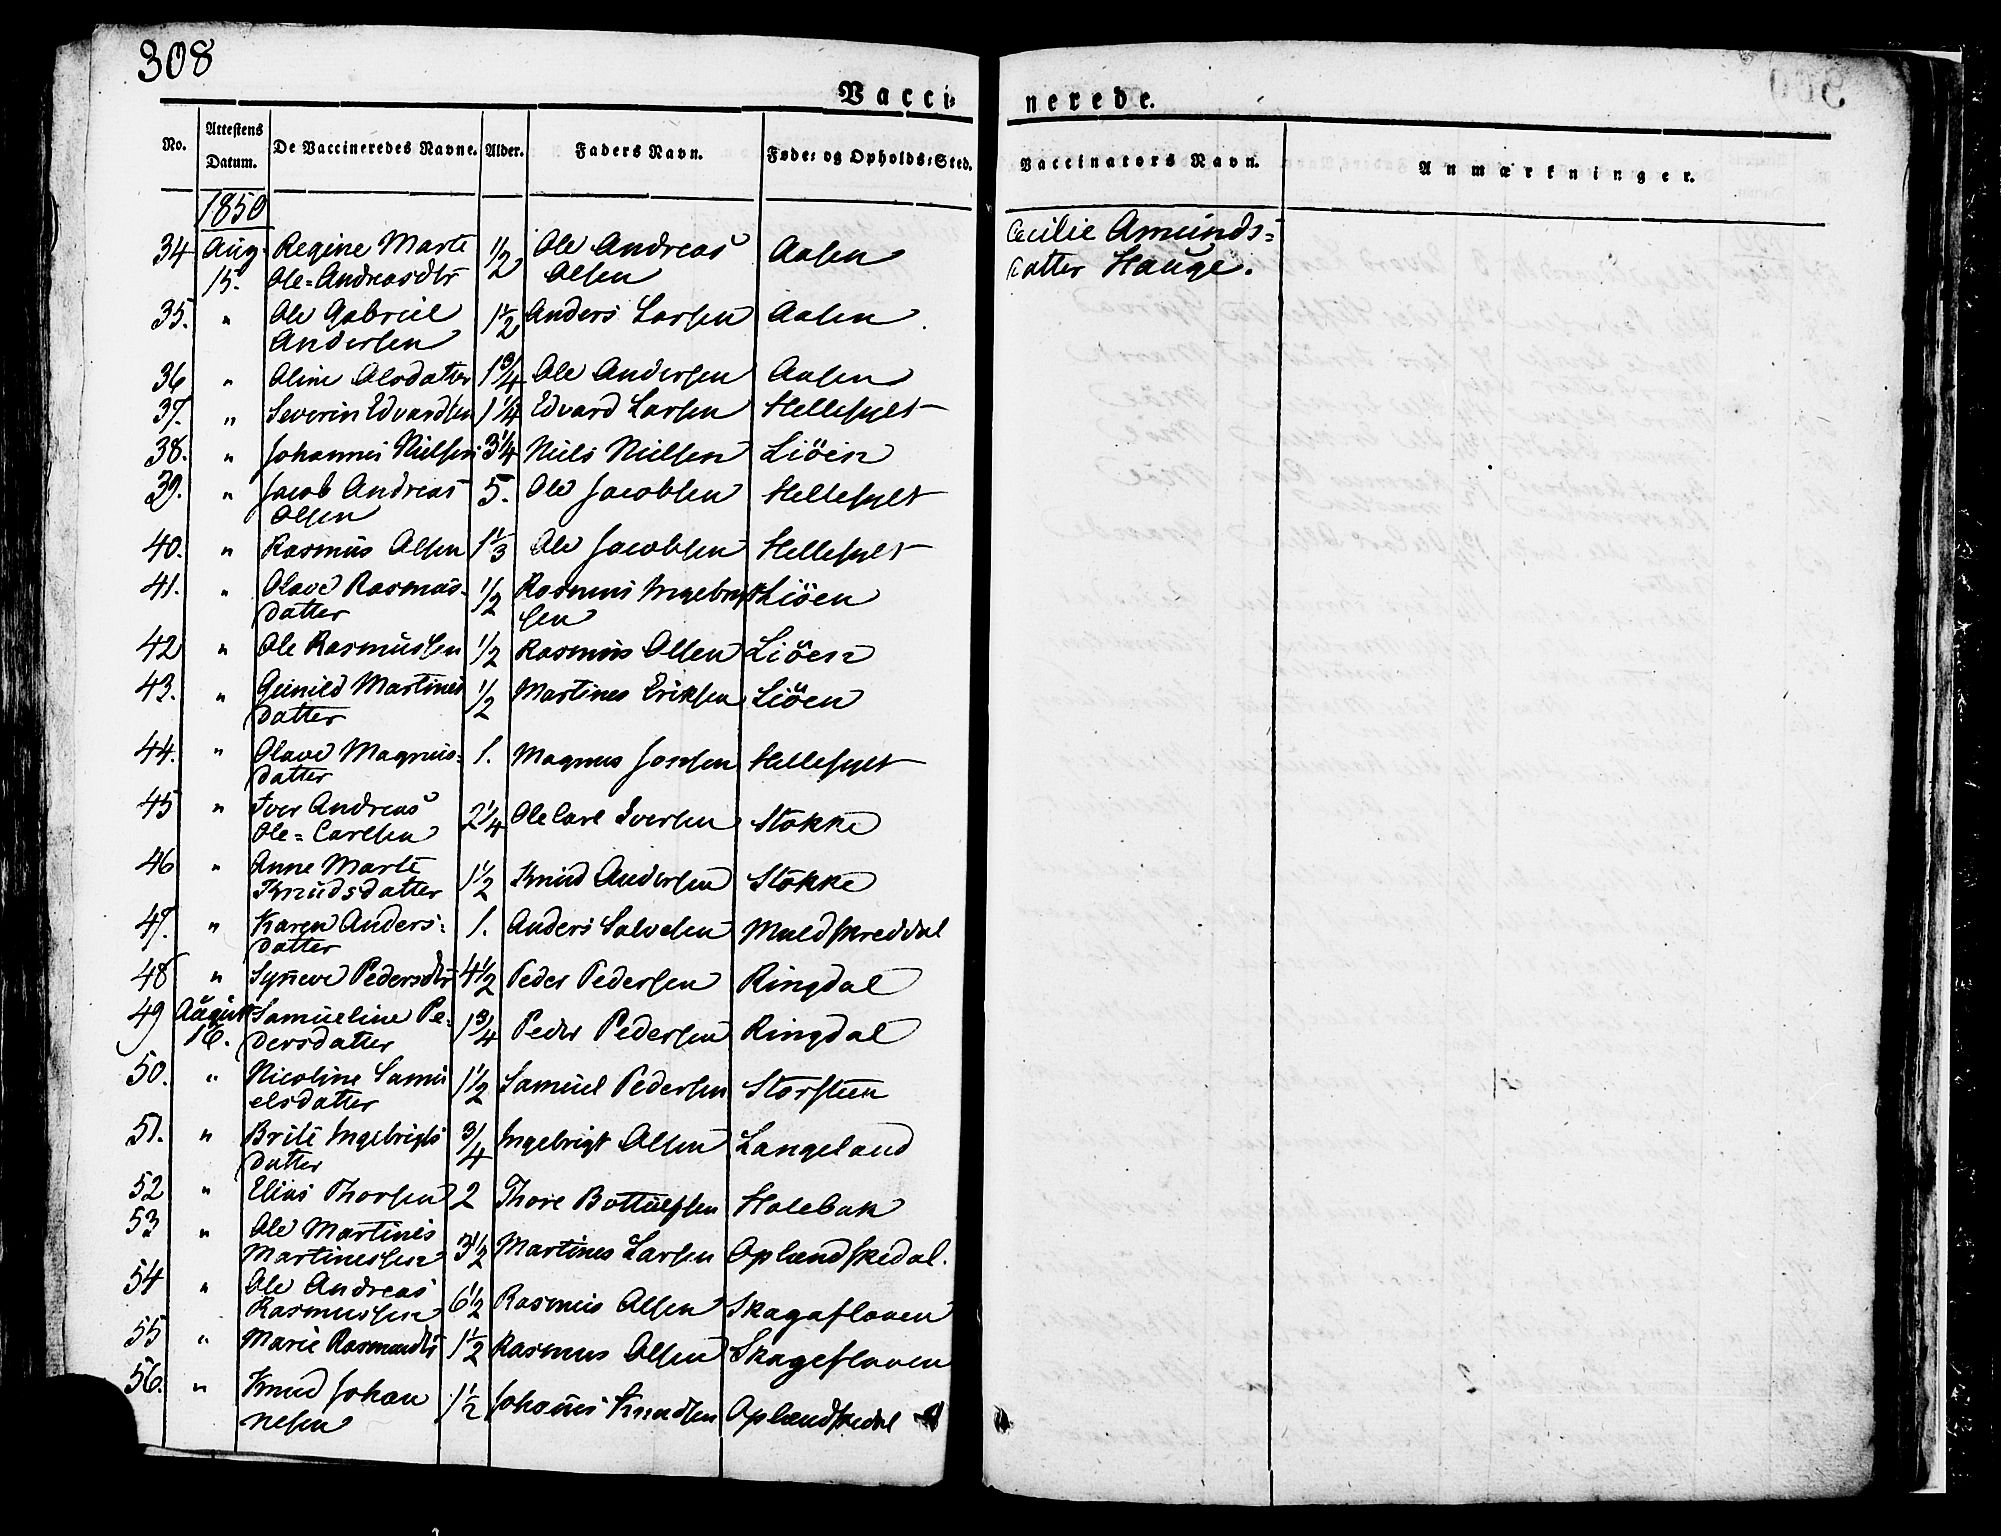 308
Vacci-
nerede.
No.
Attestens Datum.
De Vaccineredes Navne.
Alder.
Faders Navn.
Føde- og Opholds-Sted.
Vaccinators Navn.
Anmærkninger.
1850
34 Aug. Regine Marte 1/2 Ole Andreas Aasen Cecilie Amunds=
15. Ole=Andreasdtr Olsen datter Hauge.
35. " Ole Gabriel 1 1/2 Anders Larsen Aasen
Andersen
36 " Oline Olsdatter 1 3/4 Ole Andersen Aasen
37. " Severin Edvardsen 1 1/4 Edvard Larsen Hellesylt
38. " Johannes Nielsen 3 1/4 Niels Nielsen Liöen
39. " Jacob Andreas 5. Ole Jacobsen Hellesylt
Olsen
40. " Rasmus Olsen 1 1/3 Ole Jacobsen Hellesylt
41. " Olave Rasmus- 1/2 Rasmus Ingebrigt Liöen
datter sen
42 " Ole Rasmussen 1/2 Rasmus Olsen Liöen
43. " Gunild Martines 1/2 Martines Eriksen Liöen
datter
44. " Olave Magnus- 1. Magnus Jonsen Hellesylt
datter
45 " Iver Andreas 2 1/4 Ole Carl Iversen Stokke
Ole=Carlsen
46 " Anne Marte 1 1/2 Knud Andersen Stokke
Knudsdatter
47. " Karen Anders- 1. Anders Salvesen Muldskreddal
datter
48 " Synneve Pedersdtr 4 1/2 Peder Pedersen Ringdal
49 August Samueline Pe- 1 3/4 Peder Pedersen Ringdal
16. dersdatter
50. " Nicoline Samu 1 1/2 Samuel Pedersen Storsteen
elsdatter
51. " Brite Ingebrigts 3/4 Ingebrigt Olsen Langeland
datter
52 " Elias Thorsen 2 Thore Bottulfsen Holebak
53 " Ole Martines 3 1/2 Martines Larsen Oplændskedal.
Martinessen
54 " Ole Andreas 6 1/2 Rasmus Olsen Skagafloven
Rasmussen
55 " Marie Rasmusdtr 1 1/2 Rasmus Olsen Skagefloven
56. " Knud Johan 1 1/2 Johannes Knudsen Oplændskedal
nesen